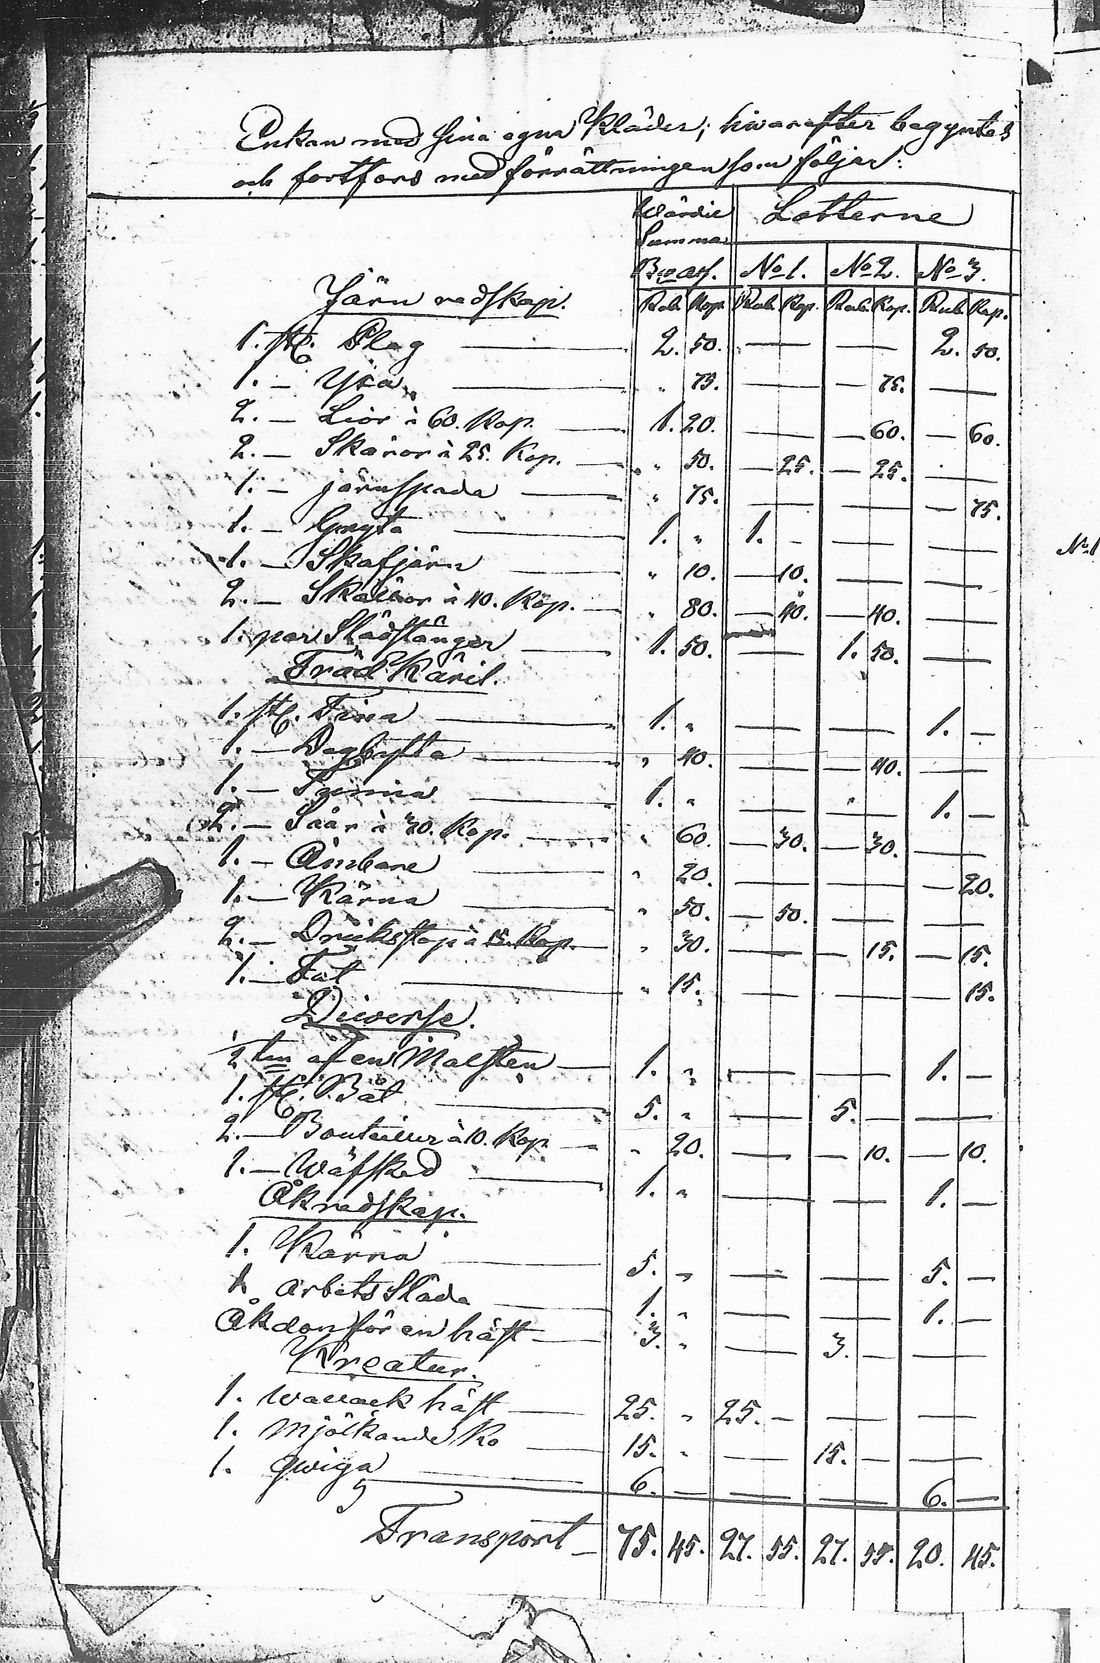 Enkan med sina egna Kläder; hwarefter begyntes
och fortfors med förrättningen som följer:
Wärdie Lotterne
Summa
No 1. No 2. No 3.
Järn redskap. Rub. Kop. Rub. Kop. Rub. Kop. Rub. Kop.
1. st. Plog — 2. 50. — — 2. 50.
1. — Yxa — " 75. — — 75. —
2. — Lior à 60. Kop. — 1. 20. — — 60. — 60.
2. — Skäror à 25. Kop. — " 50. — 25. — 25. —
1. — järnspada — " 75. — — — 75.
1. — Gryta — 1. " 1. - — —
1. — Skafjärn — " 10. — 10. — —
2. — à 40. Kop. — " 80. — 40. — 40. —
1. par Slädstänger — 1. 50. — 1. 50. —
Träd Käril.
1. st. Tina — 1. " — — 1. —
1. — Degbytta — " 40. — — 40. —
1. — Tunna — 1. " — — 1. —
2. — Såar à 30. Kop. — " 60. — 30. — 30. —
1. — Ämbare — " 20. — — — 20.
1. — Kärna — " 50. — 50. — —
2. — Dricksstop à 15. Kop. — " 30. — — 15. — 15.
1. — Fat — " 15. — — — 15.
Diverse.
1/2 ten af en Malsten — 1. " — — 1. —
1. st. Båt — 5. " — 5. — —
2. — Bouteiller à 10. Kop. — " 20. — — 10. — 10.
1. — Wäfsked — 1. " — — 1. —
Åkredskap.
1. Kärra — 5. " — — 5. —
1. Arbets Släda — 1. " — — 1. —
Åkdon för en häst — 3. " — 3. — —
Kreatur.
1. Wallack häst — 25. " 25. - — —
1. Mjölkande Ko — 15. " — 15. — —
1. Qwiga — 6. " — — 6. —
Transport — 75. 45. 27. 55. 27. 55. 20. 45.
No 1